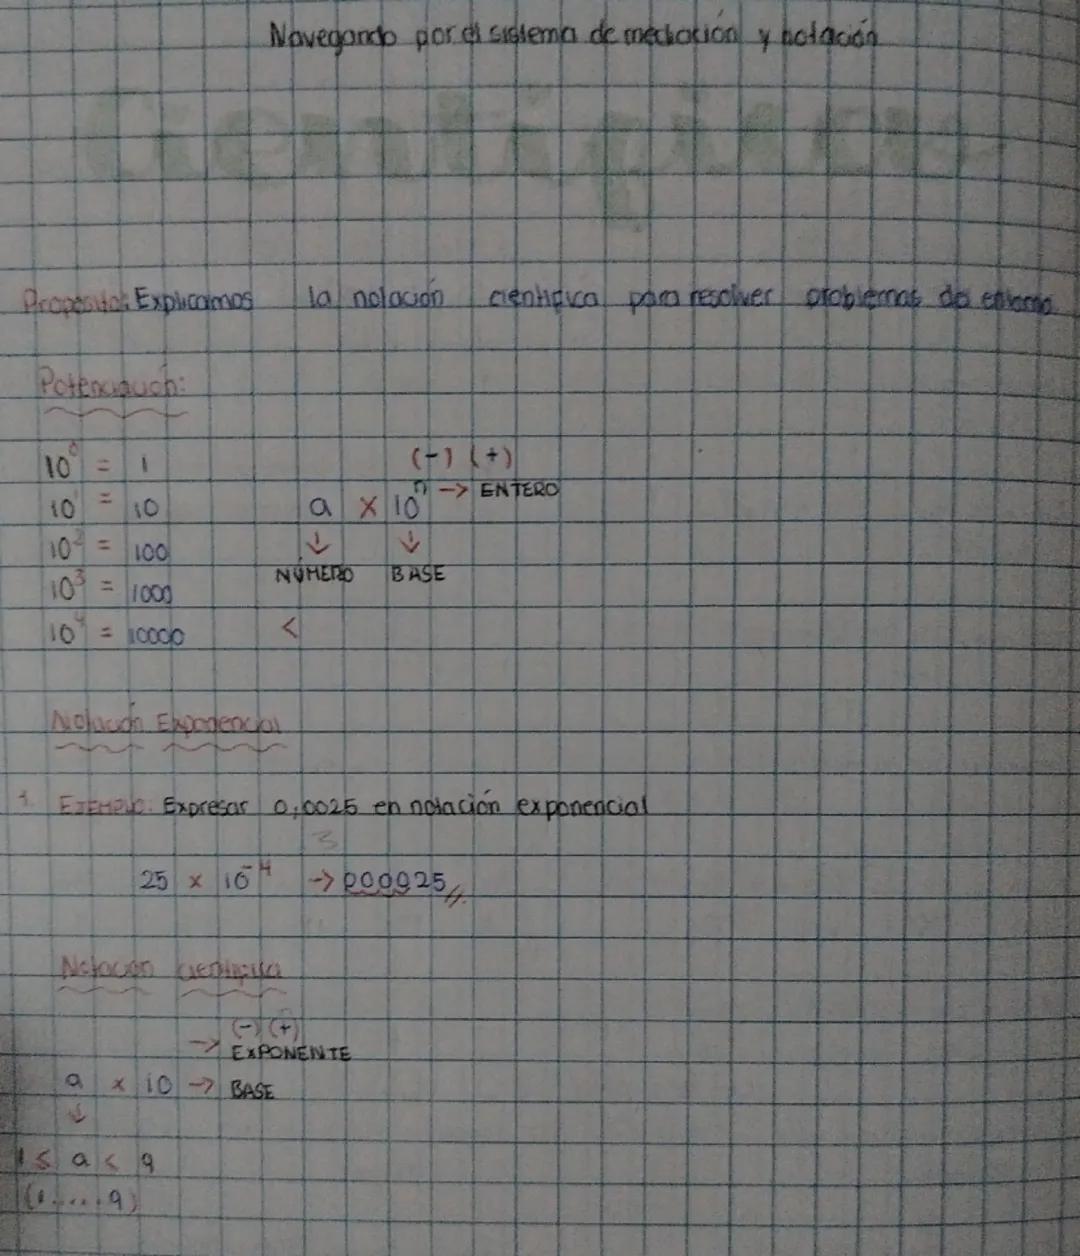 Navegando por el sistema de mediación y notación
Proposito: Explicamos la notación cientifica para resolver problemas de entorno
Potenciación:
10⁰ = 1
(-) (+)
10¹ = 10
a x 10ⁿ → ENTERO
10² = 100
↓ ↓
NÚMERO BASE
10³ = 1000
10⁴ = 10000
<
Notación Exponencial
1. EJEMPLO: Expresar 0,0025 en notación exponencial
3
25 x 10⁻⁴ → 000025
Notación cientifica
(-) (+)
→ EXPONENTE
a x 10 → BASE
↓
1 ≤ a < 9
(1....9)